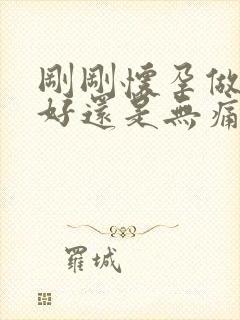 剛剛懷孕做
好還是無痛
羅城